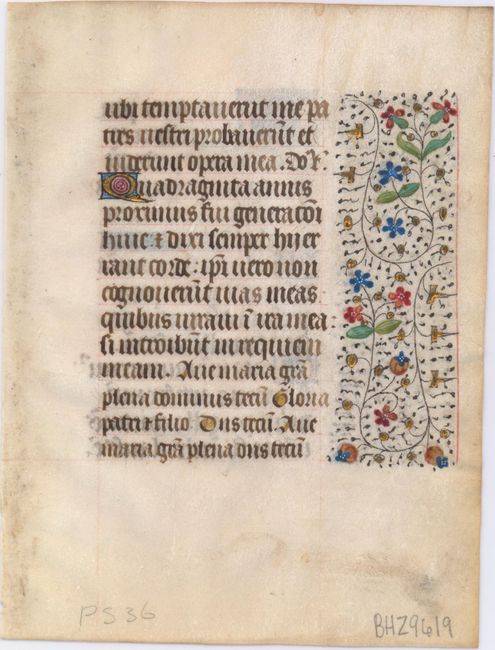 ubi temptaverūt me pa
tres vestri probaverūt et
viderunt opera mea. Dn̄s.
Quadraginta annis
proximus fui generacōi
huic & dixi semper hij er
rant corde: ip̄i vero non
cognoverūt vias meas:
quibus iuravi ī ira mea:
si introibūt in requiem
meam. Ave maria grā
plena dominus tecū Gloria
patri & filio Dn̄s tecū. Ave
maria grā plena dn̄s tecū
PS36
BHZ9619